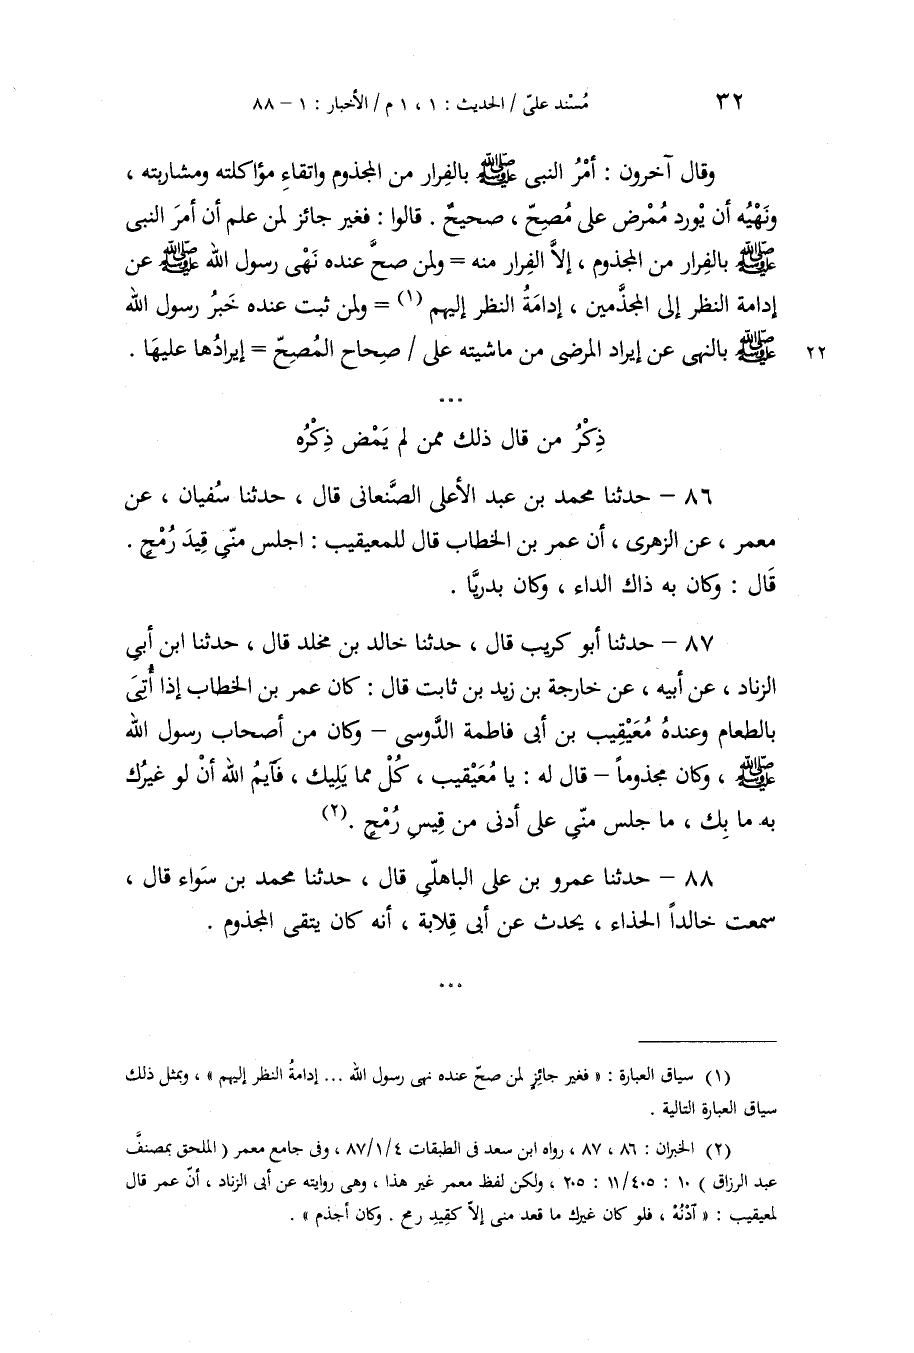 ٣٢ مُسْند علىّ / الحديث : ١ ، ١ م / الأخبار : ١ – ٨٨
وقال آخرون : أمْرُ النبى ﷺ بالفِرار من المجذوم واتقاءِ مؤاكلته ومشاربته ،
ونَهْيُه أن يُورد مُمْرض على مُصِحّ ، صحيحٌ . قالوا : فغير جائز لمن علم أن أمرَ النبى
ﷺ بالفِرار من المجذوم ، إلاَّ الفرار منه = ولمن صحَّ عنده نَهْى رسول الله ﷺ عن
إدامة النظر إلى المجذَّمين ، إدامَةُ النظر إليهم (١) = ولمن ثبت عنده خَبرُ رسول الله
ﷺ بالنهى عن إيراد المرضى من ماشيته على / صِحاح المُصِحّ = إيرادُها عليهَا . ٢٢
...
ذِكْرُ من قال ذلك ممن لم يَمْض ذِكْرُه
٨٦ – حدثنا محمد بن عبد الأعلى الصَّنعانى قال ، حدثنا سُفيان ، عن
معمر ، عن الزهرى ، أن عمر بن الخطاب قال للمعيقيب : اجلس منّي قِيدَ رُمْحٍ .
قَال : وكان به ذاك الداء ، وكان بدريًّا .
٨٧ – حدثنا أبو كريب قال ، حدثنا خالد بن مخلد قال ، حدثنا ابن أبي
الزناد ، عن أبيه ، عن خارجة بن زيد بن ثابت قال : كان عمر بن الخطاب إذا أُتِىَ
بالطعام وعندهُ مُعَيْقِيب بن أبى فاطمة الدَّوسى – وكان من أصحاب رسول الله
ﷺ ، وكان مجذوماً – قال له : يا مُعَيْقيب ، كُلْ مما يَلِيك ، فَآيمُ الله أنْ لو غيرُك
به ما بِك ، ما جلس منّي على أدنى من قِيسِ رُمْحٍ .(٢)
٨٨ – حدثنا عمرو بن على الباهلّي قال ، حدثنا محمد بن سَواء قال ،
سمعت خالداً الحذاء ، يحدث عن أبى قِلابة ، أنه كان يتقى المجذوم .
...
(١) سياق العبارة : « فغير جائِزٍ لمن صحّ عنده نهى رسول الله ... إدامةُ النظر إليهم » ، وبمثل ذلك
سياق العبارة التالية .
(٢) الخبران : ٨٦ ، ٨٧ ، رواه ابن سعد فى الطبقات ٨٧/١/٤ ، وفى جامع معمر ( الملحق بمصنفَّ
عبد الرزاق ) ١٠ : ١١/٤٠٥ : ٢٠٥ ، ولكن لفظ معمر غير هذا ، وهى روايته عن أبى الزناد ، أنّ عمر قال
لمعيقيب : « آدْنُهْ ، فلو كان غيرك ما قعد منى إلاّ كقِيدِ رمح . وكان أجذم » .